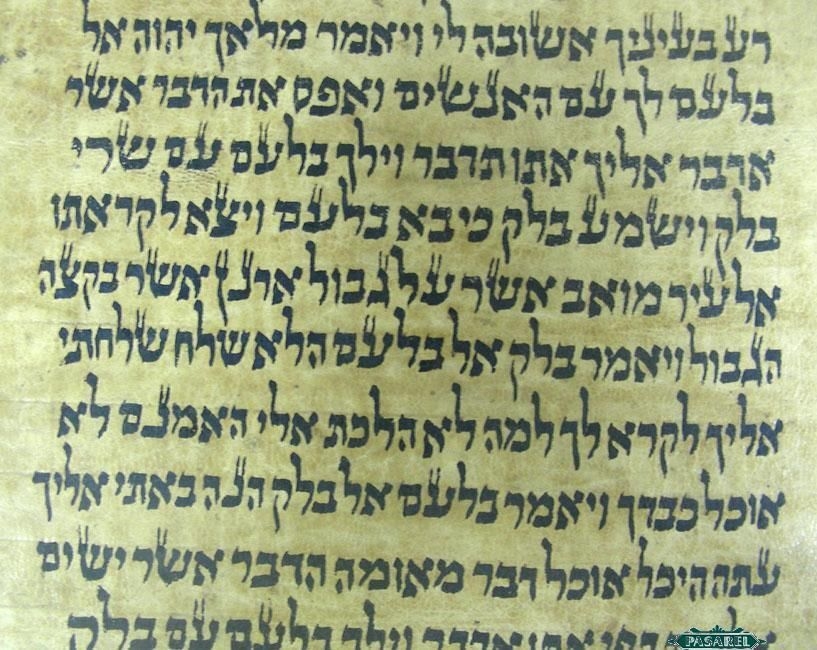 רע בעיניך אשובה לי ויאמר מלאך יהוה אל
בלעם לך עם האנשים ואפס את הדבר אשר
אדבר אליך אתו תדבר וילך בלעם עם שרי
בלק וישמע בלק כי בא בלעם ויצא לקראתו
אל עיר מואב אשר על גבול ארנן אשר בקצה
הגבול ויאמר בלק אל בלעם הלא שלח שלחתי
אליך לקרא לך למה לא הלכת אלי האמנם לא
אוכל כבדך ויאמר בלעם אל בלק הנה באתי אליך
עתה היכל אוכל דבר מאומה הדבר אשר ישים
בפי אתו אדבר וילך בלעם עם בלק
PASAREL